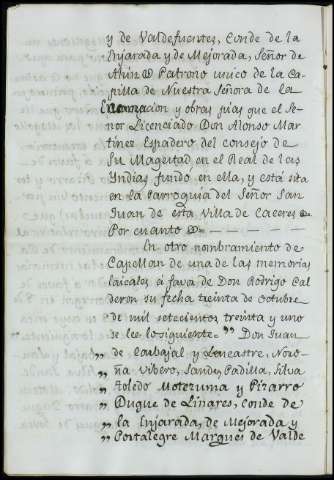 y de Valdefuentes, Conde de la
Enjarada y de Mejorada, Señor de
Atun @ Patrono unico de la Ca-
pilla de Nuestra Señora de la
Encarnacion y obras pias que el Se-
ñor Licenciado Don Alonso Mar-
tinez Espadero del consejo de
Su Magestad en el Real de las
Yndias fundó en ella, y está sita
en la Parroquia del Señor San
Juan de esta Villa de Caceres @
Por cuanto @ - - - - - -
En otro nombramiento de
Capellan de una de las memorias
laicales á favor de Don Rodrigo Cal
deron su fecha treinta de octubre
de mil setecientos treinta y uno
se lee lo siguiente = „ Don Juan
„ de Carbajal y Lencastre, Noro-
„ ña Vibero, Sande, Padilla, Silva
„ Toledo Motezuma y Pizarro
„ Duque de Linares, Conde de
„ la Enjarada, de Mejorada y
„ Portalegre Marques de Valde